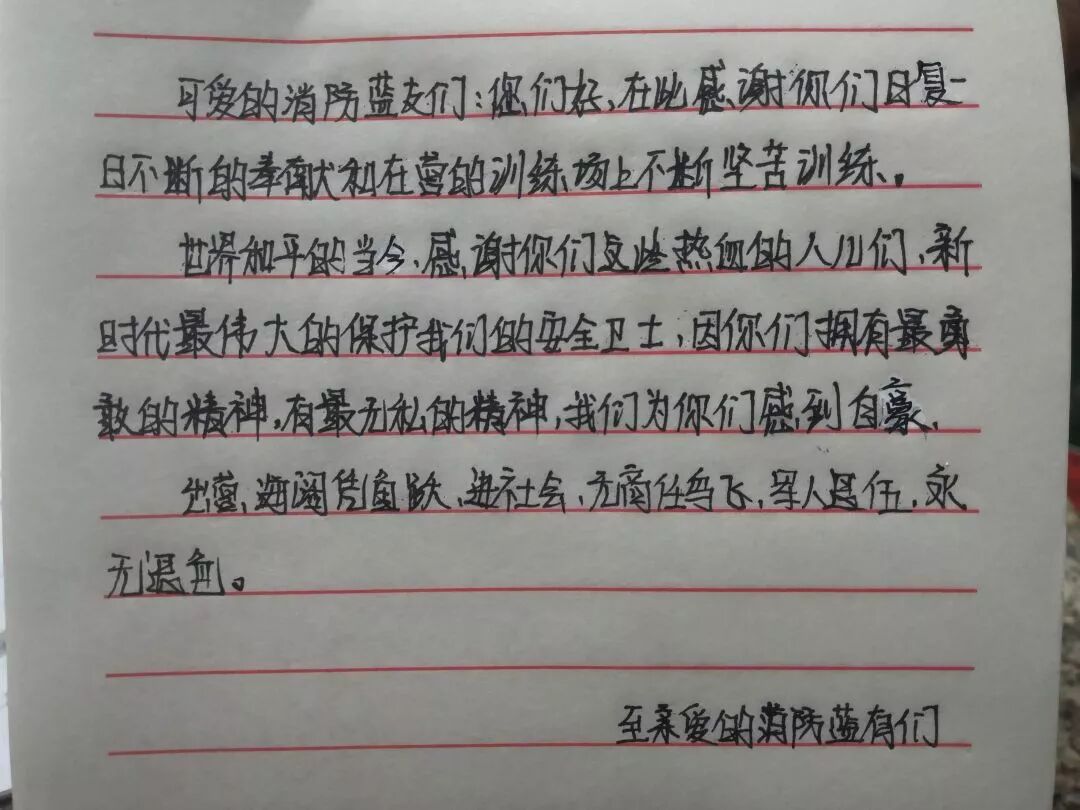 可爱的消防蓝友们：你们好，在此感谢你们日复一
日不断的奉献和在营的训练场上不断坚苦训练。
世界和平的当今，感谢你们这些热血的人儿们，新
时代最伟大的保护我们的安全卫士，因你们拥有最勇
敢的精神，有最无私的精神，我们为你们感到自豪，
出营，海阔凭鱼跃，进社会，天高任鸟飞，军人退伍，永
无退色。
至亲爱的消防蓝有们